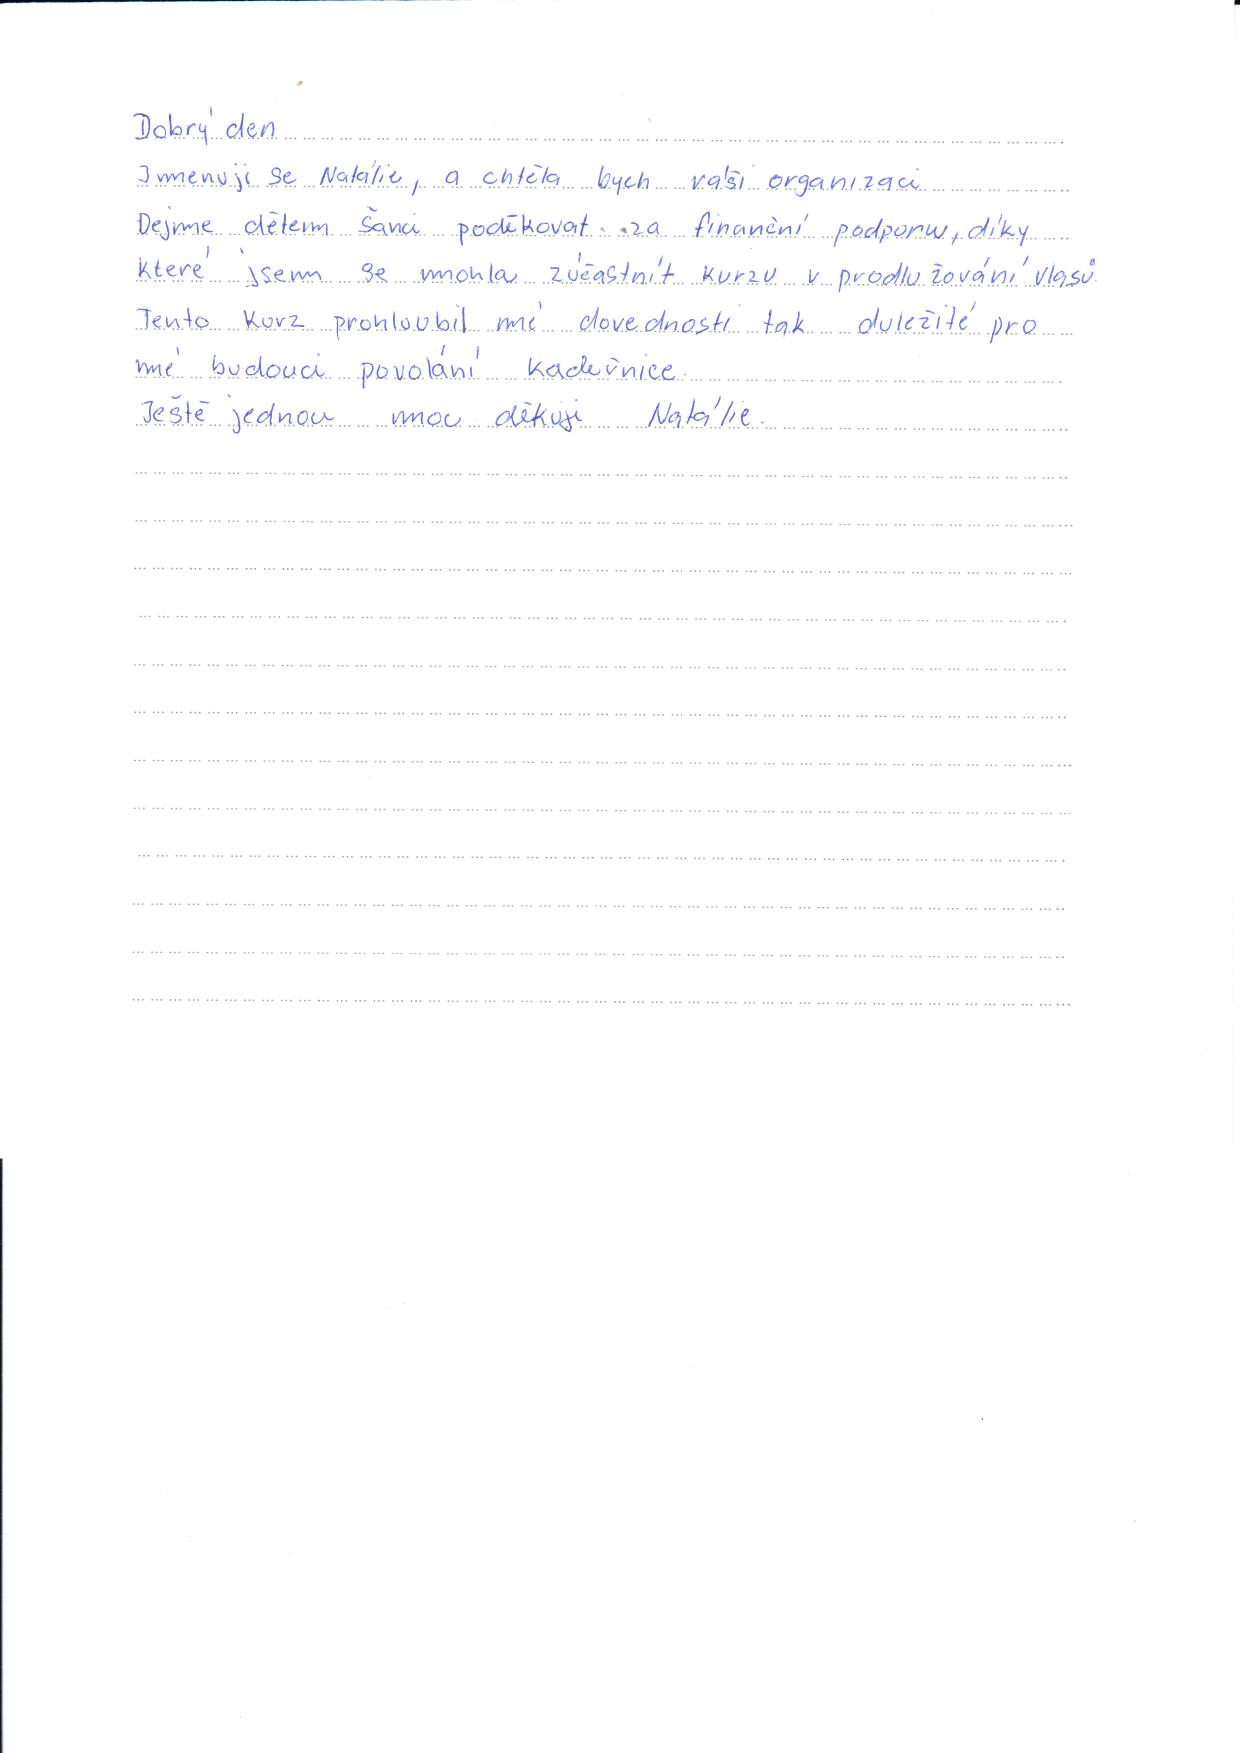 Dobrý den
Jmenuji se Natálie, a chtěla bych vaší organizaci
Dejme dětem šanci poděkovat za finanční podporu, díky
které jsem se mohla zúčastnit kurzu v prodlužování vlasů.
Tento kurz prohloubil mé dovednosti tak duležité pro
mé budoucí povolání kadeřnice.
Ještě jednou moc děkuji Natálie.